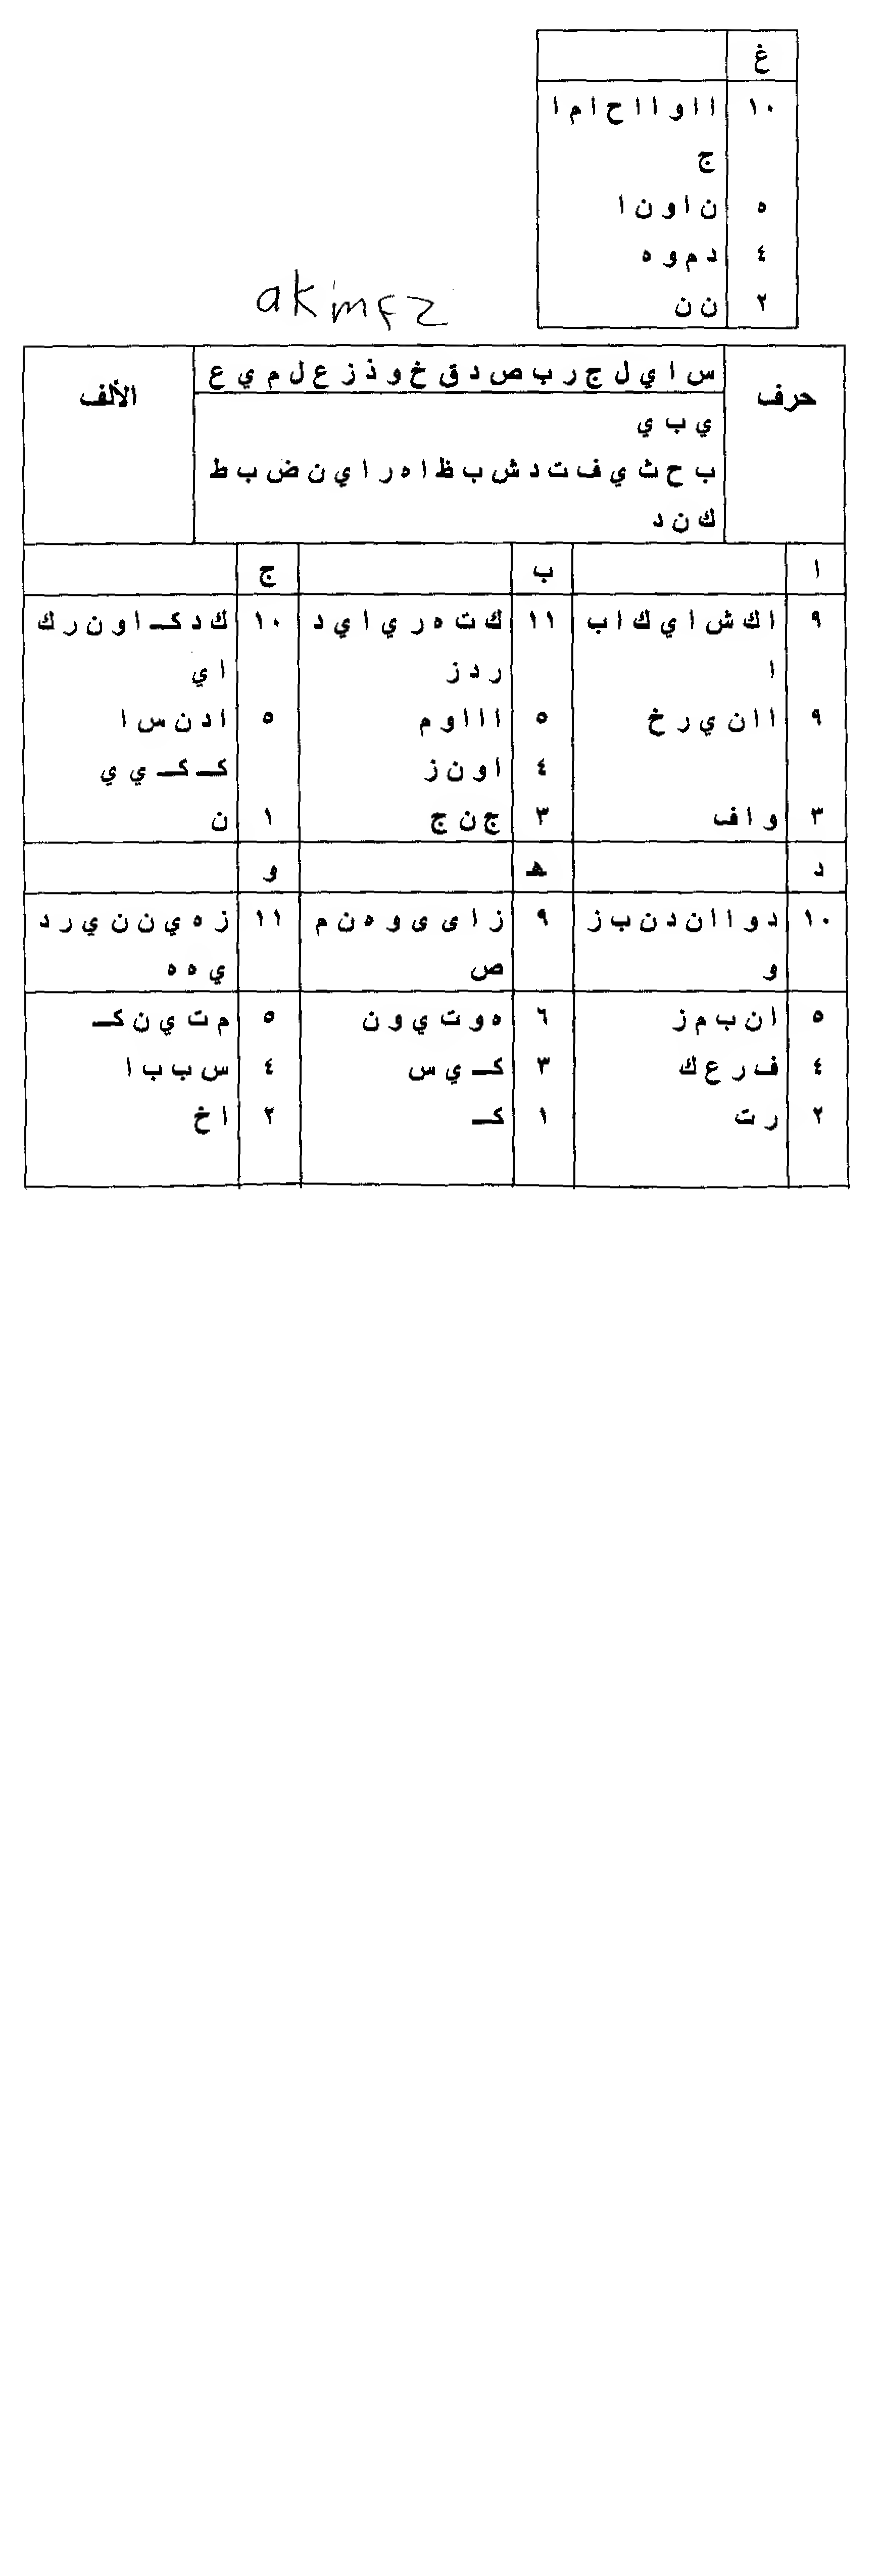 غ
١٠ ا ا و ا ا ح ا م ا
ج
٥ ن ا و ن ا
٤ د م و ه
٢ ن ن
حرف س ا ي ل ج ر ب ص د ق خ و ذ ز ع ل م ي ع الألف
ي ب ي
ب ح ث ي ف ت د ش ب ظ ا ه ر ا ي ن ض ب ط
ك ن د
ا ب ج
٩ ا ك ش ا ي ك ا ب ١١ ك ت ه ر ي ا ي د ١٠ ك د كـ ا و ن ر ك
ا ر د ز ا ي
٩ ا ا ن ي ر خ ٥ ا ا ا و م ٥ ا د ن س ا
٤ ا و ن ز كـ كـ ي ي
٣ و ا ف ٣ ج ن ج ١ ن
د هـ و
١٠ د و ا ا ن د ن ب ز ٩ ز ا ى ى و ه ن م ١١ ز ه ي ن ن ي ر د
و ص ي ه ه
٥ ا ن ب م ز ٦ ه و ت ي و ن ٥ م ت ي ن كـ
٤ ف ر ع ك ٣ كـ ي س ٤ س ب ب ا
٢ ر ت ١ كـ ٢ ا خ